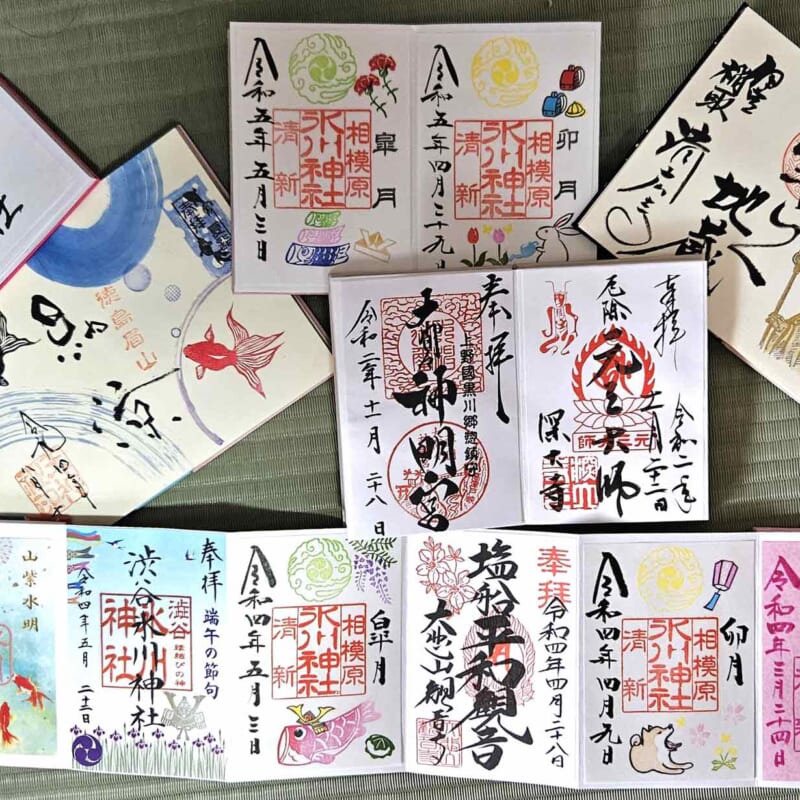 令和五年五月三日
相模原
氷川神社
清新
皐月
令和五年四月二十九日
相模原
氷川神社
清新
卯月
地蔵
徳島眉山
涼
奉拝
上野國黒川郷惣鎮守
神明宮
令和二年十一月二十八日
奉拝
令和二年
十一月二十二日
厄除
元三大師
深大寺
山紫水明
奉拝
端午の節句
渋谷
縁結びの神
氷川
神社
渋谷氷川神社
令和四年五月二十二日
令和四年五月三日
相模原
氷川神社
清新
皐月
奉拝
令和四年四月二十八日
塩船平和観音
大悲山観音寺
令和四年四月元日
相模原
氷川神社
清新
卯月
令和四年三月二十四日